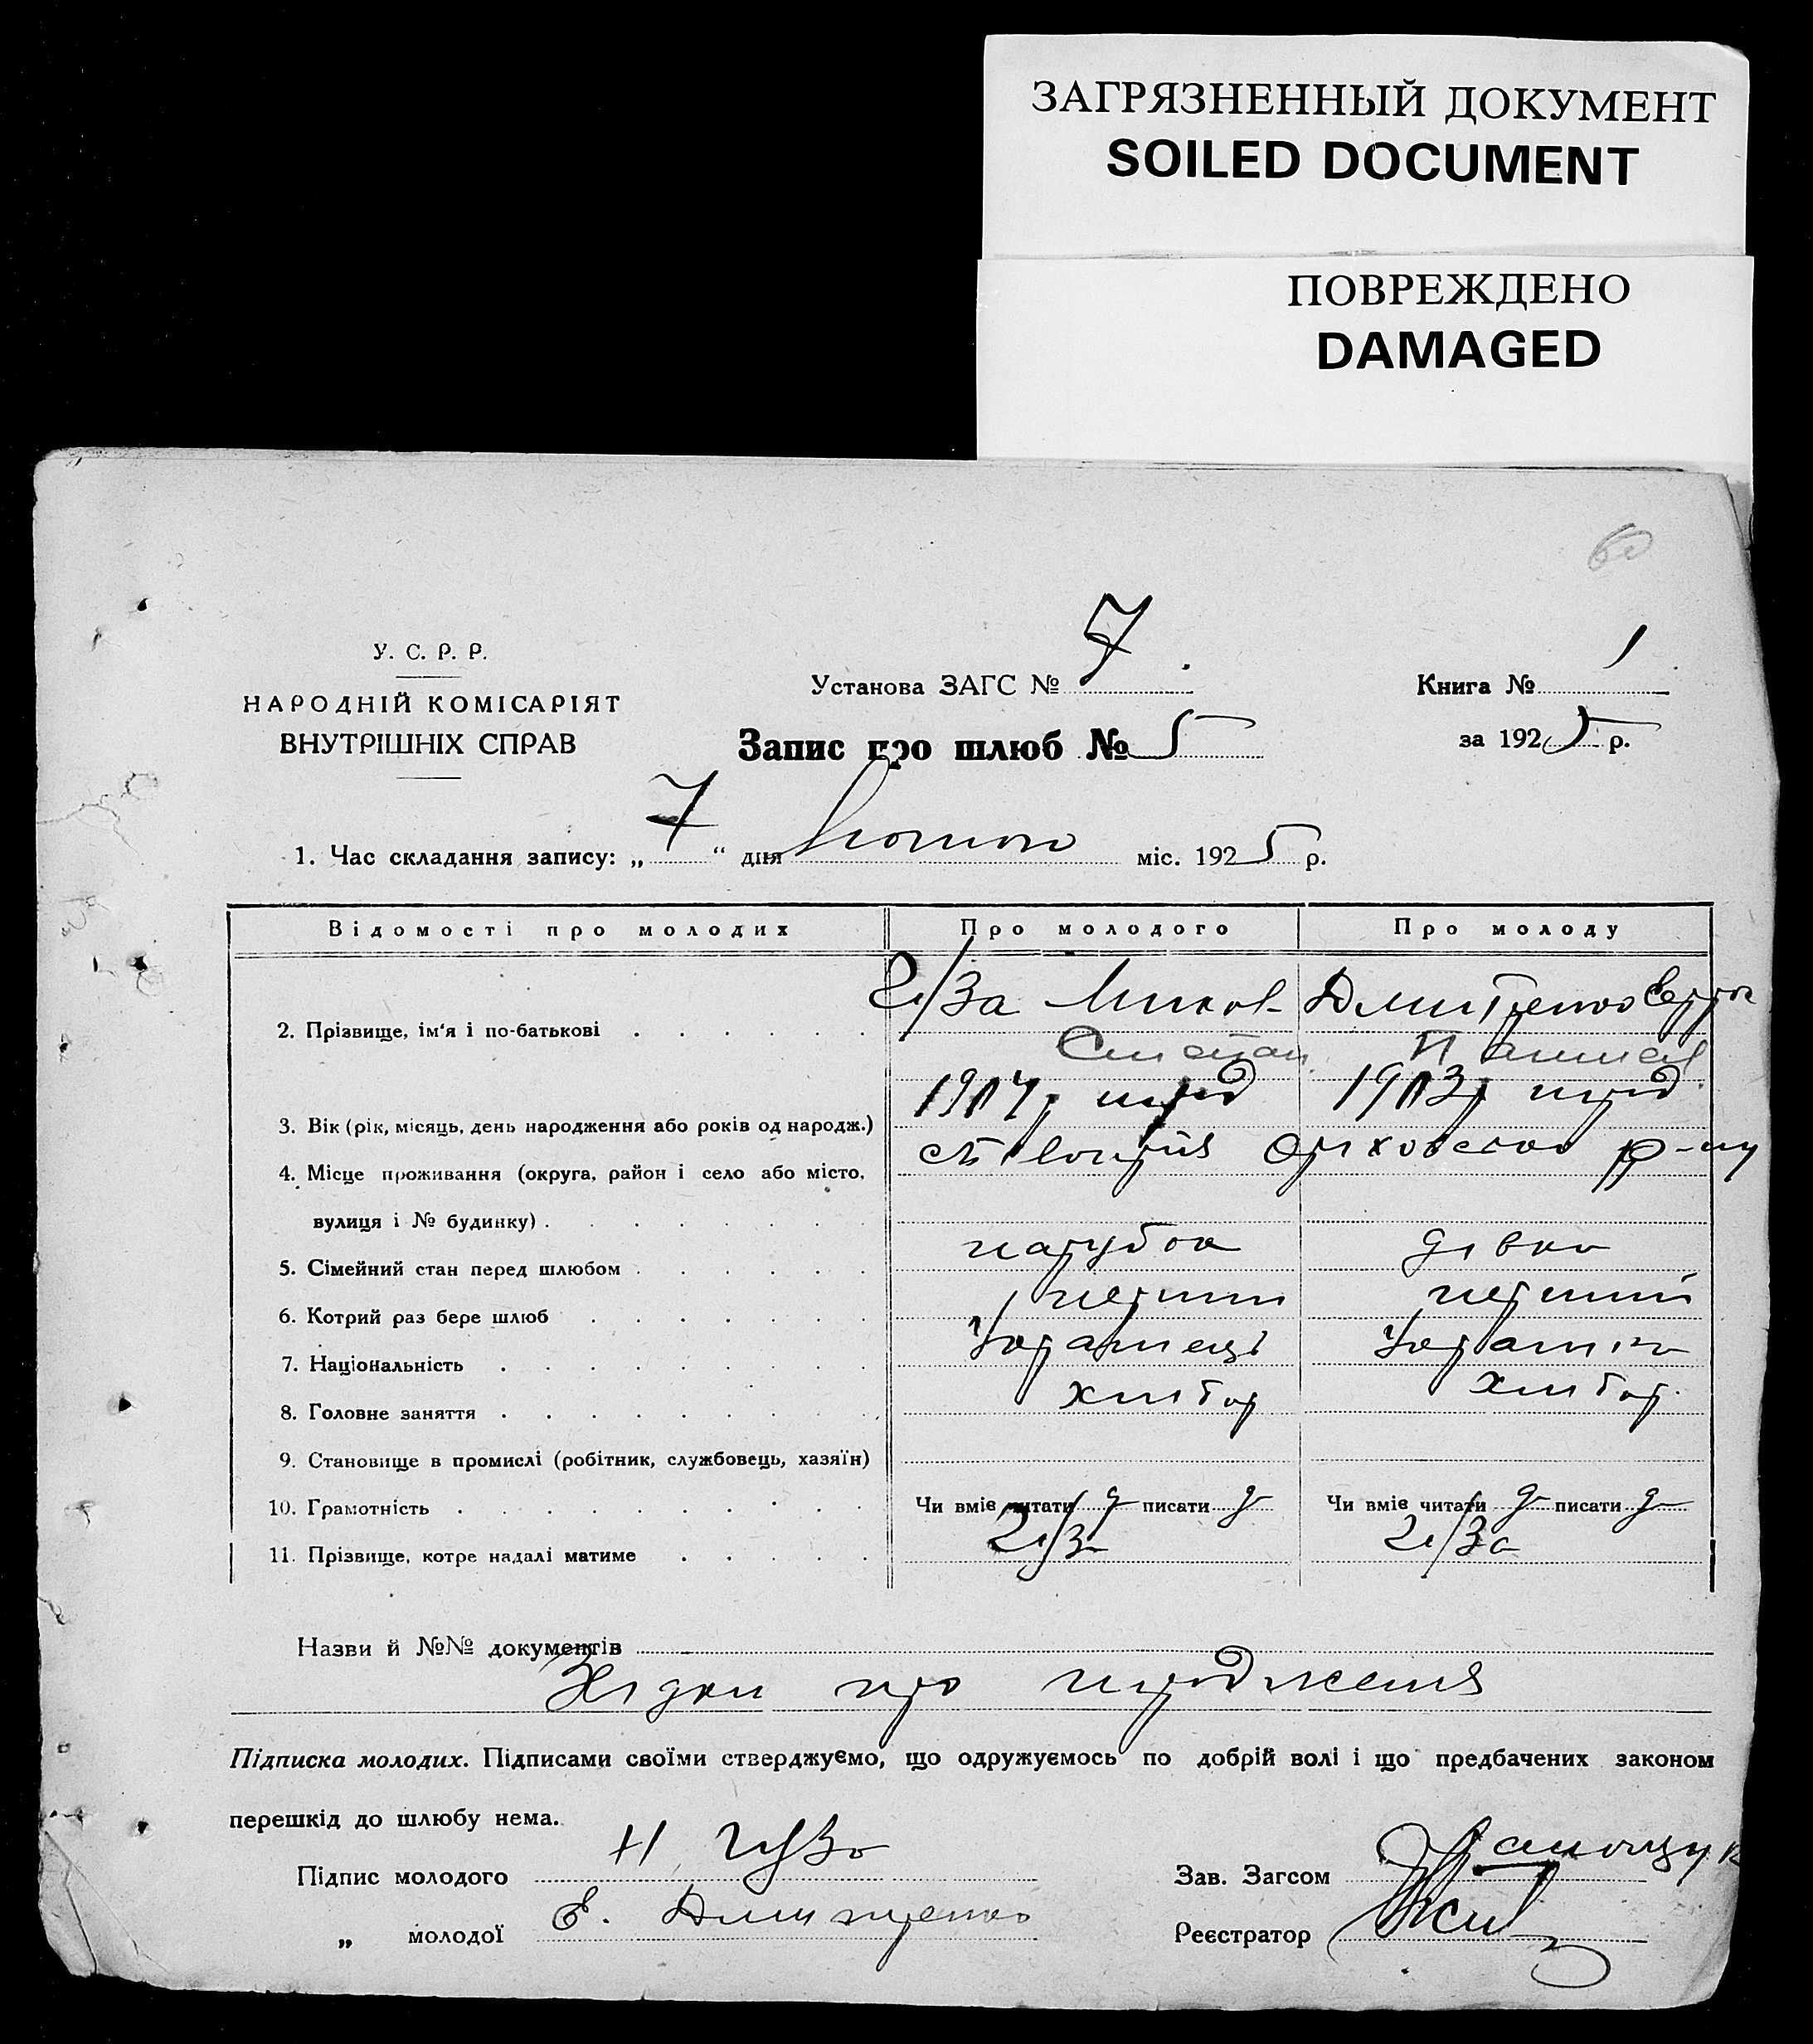 ЗАГРЯЗНЕННЫЙ ДОКУМЕНТ
SOILED DOCUMENT
ПОВРЕЖДЕНО
DAMAGED
60
У. С. Р. Р.
НАРОДНІЙ КОМІСАРІЯТ
ВНУТРІШНІХ СПРАВ
Установа ЗАГС № 7.
Книга № 1
Запис про шлюб № 5
за 1925 р.
1. Час складання запису: „7“ дня Лютого міс. 1925 р.
Відомості про молодих Про молодого Про молоду
2. Прізвище, ім'я і по-батькові Гуза Микол Дмитренко
Степан
3. Вік (рік, місяць, день народження або років од народж.) народ 1903 народ
4. Місце проживання (округа, район і село або місто, Оріховского р-ну
вулиця і № будинку)
5. Сімейний стан перед шлюбом парубок дівка
6. Котрий раз бере шлюб перший перший
7. Національність Українець Українка
8. Головне заняття хлібор хлібор.
9. Становище в промислі (робітник, службовець, хазяїн)
10. Грамотність Чи вміє читати писати Чи вміє читати писати
11. Прізвище, котре надалі матиме Гуза Гуза
Назви й №№ документів
про народження
Підписка молодих. Підписами своїми стверджуємо, що одружуємось по добрій волі і що предбачених законом
перешкід до шлюбу нема.
Підпис молодого Н Гуза
Зав. Загсом
„ молодої Є. Дмитренко
Реєстратор